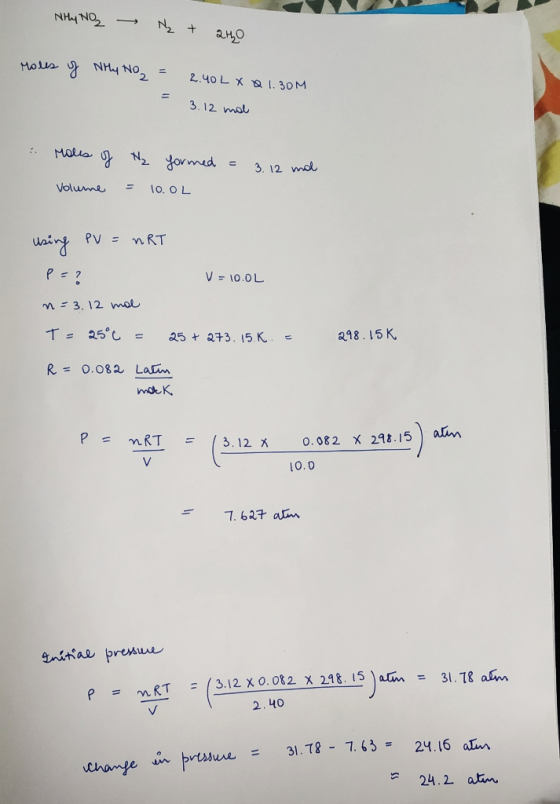 NH4NO2 → N2 + 2H2O
Moles of NH4NO2 = 2.40L × 1.30M
= 3.12 mol
∴ Moles of N2 formed = 3.12 mol
Volume = 10.0L
Using PV = nRT
P = ? V = 10.0L
n = 3.12 mol
T = 25°C = 25 + 273.15K = 298.15K
R = 0.082 Latm/molK
P = nRT/V = (3.12 × 0.082 × 298.15 / 10.0) atm
= 7.627 atm
Initial pressure
P = nRT/V = (3.12 × 0.082 × 298.15 / 2.40) atm = 31.78 atm
Change in pressure = 31.78 - 7.63 = 24.16 atm
≈ 24.2 atm